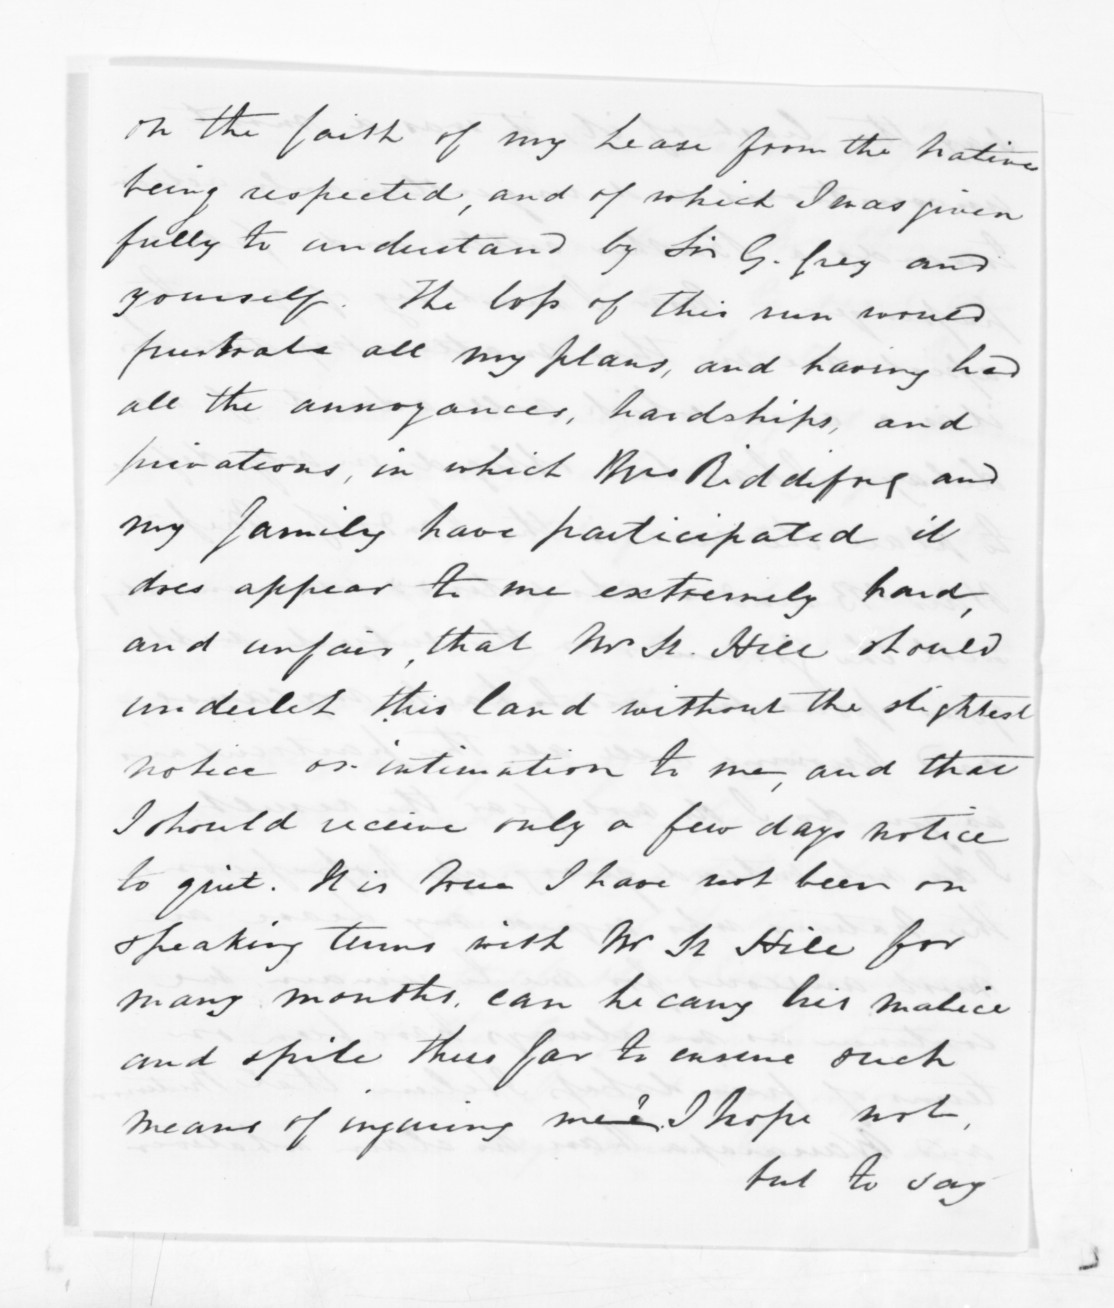 on the faith of my Lease from the Natives
being respected, and of which I was given
fully to understand by Sir G. Grey and
yourself. The loss of this run would
frustrate all my plans, and having had
all the annoyances, hardships, and
privations, in which Mrs Riddiford and
my family have participated it
does appear to me extremely hard,
and unfair, that Mr St. Hill should
underlet this land without the slightest
notice or intimation to me, and that
I should receive only a few days notice
to quit. It is true I have not been on
speaking terms with Mr St Hill for
many months. can he carry his malice
and spite thus far to ensure such
means of injuring me? I hope not,
but to say